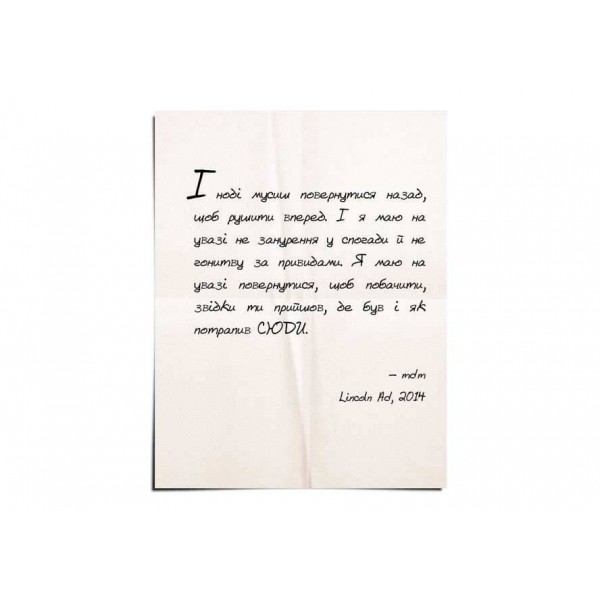 Іноді мусиш повернутися назад,
щоб рушити вперед. І я маю на
увазі не занурення у спогади й не
гонитву за привидами. Я маю на
увазі повернутися, щоб побачити,
звідки ти прийшов, де був і як
потрапив СЮДИ.
– mdm
Lincoln Ad, 2014